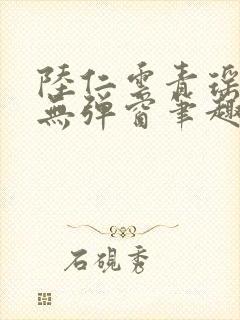 陸仁雲青瑤
無彈窗筆趣
石硯秀